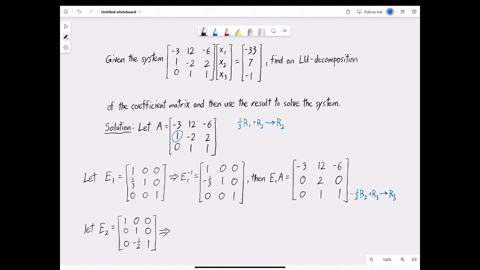 Untitled whiteboard
Follow me
Given the system [-3 12 -6; 1 -2 2; 0 1 1] [x₁; x₂; x₃] = [-33; 7; -1], find an LU-decomposition
of the coefficient matrix and then use the result to solve the system.
Solution: Let A = [-3 12 -6; 1 -2 2; 0 1 1] ⅓R₁+R₂→R₂
Let E₁ = [1 0 0; ⅓ 1 0; 0 0 1] ⇒ E₁⁻¹ = [1 0 0; -⅓ 1 0; 0 0 1], then E₁A = [-3 12 -6; 0 2 0; 0 1 1] -½R₂+R₃→R₃
let E₂ = [1 0 0; 0 1 0; 0 -½ 1] ⇒
100%